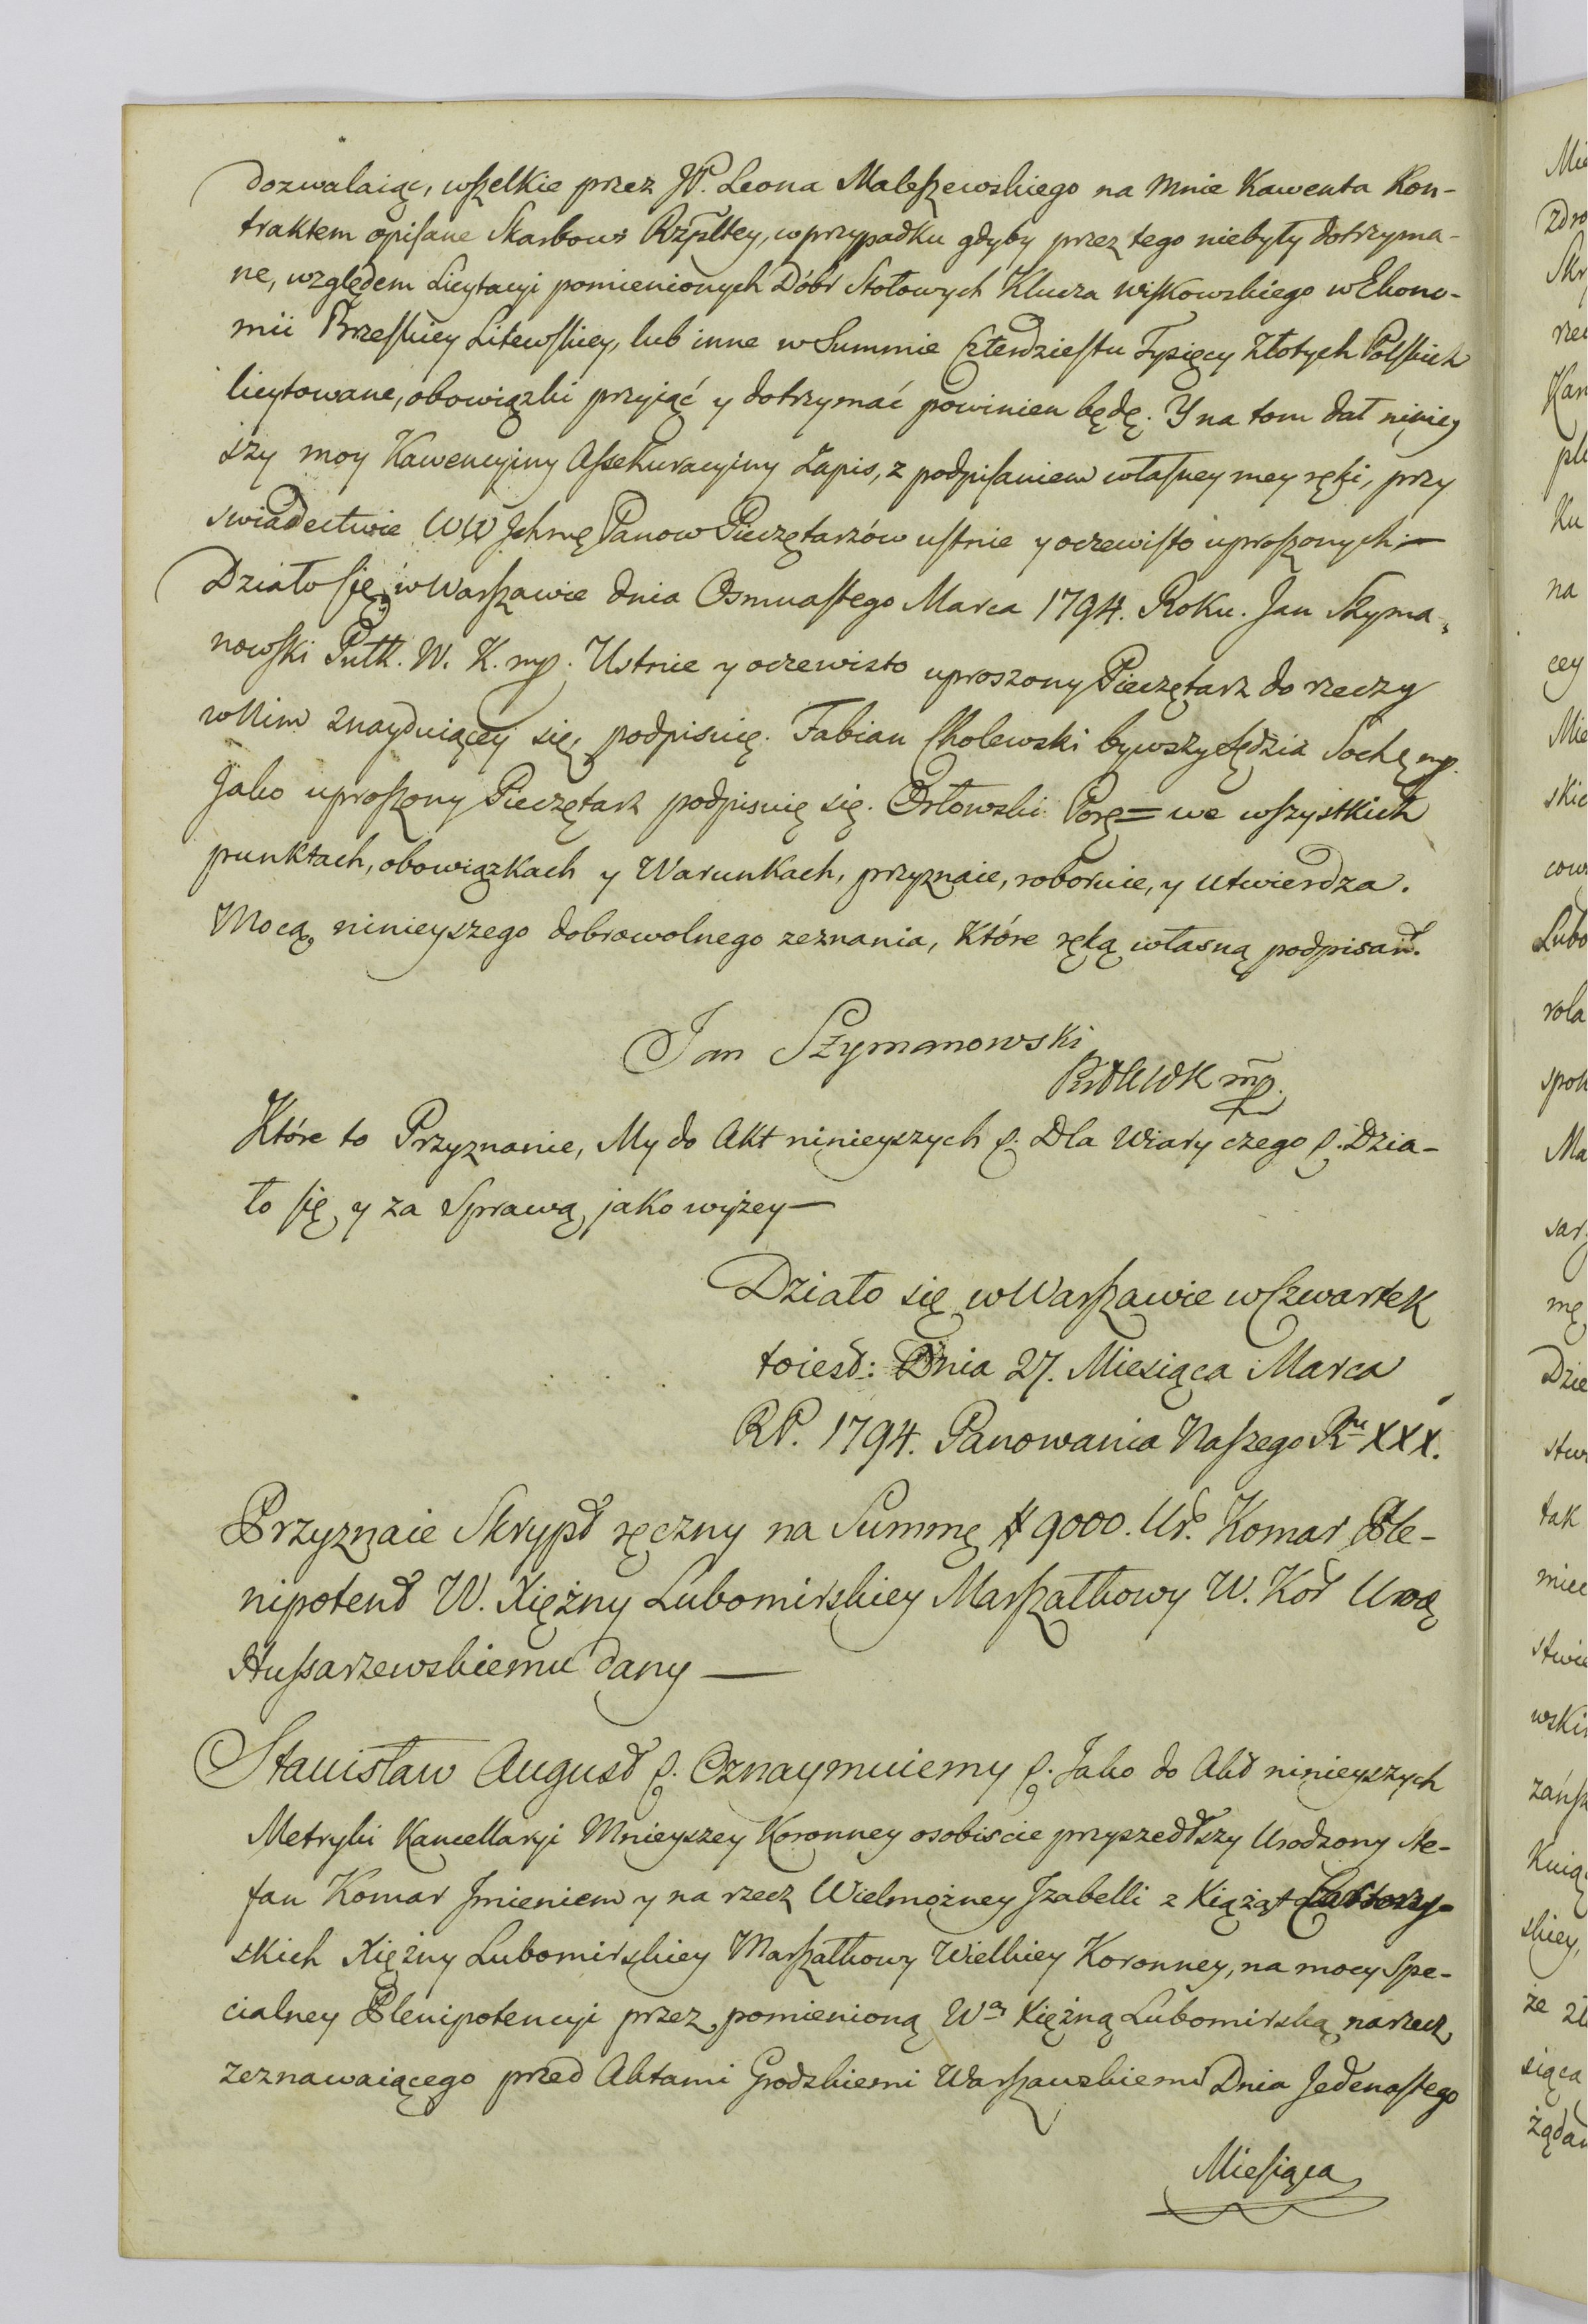 dozwalaiąc, wszelkie przez JP. Leona Maleszewskiego na mnie Kawenta Kon-
traktem opisane Skarbowi Rzpltey, w przypadku gdyby przez tego niebyły dotrzyma-
ne, względem Licytacyi pomienionych Dóbr Stołowych Klucza Wiskowskiego w Ekono-
mii Brzeskiey Litewskiey, lub inne w Summie Czterdziestu Tysięcy Złotych Polskich
licytowane, obowiązki przyjąć y dotrzymać powinien będę. Y na tom dał niniey
szy moy Kawencyiny Assekuracyiny Zapis, z podpisaniem własney mey ręki, przy
swiadectwie WW Jchmę Panow Pieczętarzów ustnie y oczewisto uproszonych. —
Działo się w Warszawie dnia Osmnastego Marca 1794. Roku. Jan Szyma-
nowski Pułk. W. K. mp. Ustnie y oczewisto uproszony Pieczętarz do rzeczy
w Nim znayduiącey się podpisuię. Fabian Cholewski bywszy Sędzia Soch: mp.
Jako uproszony Pieczętarz podpisuię się. Orłowski Porę= we wszystkich
punktach, obowiązkach y Warunkach, przyznaie, roboruie, y utwierdza.
Mocą ninieyszego dobrowolnego zeznania, Które ręką własną podpisał.
Jan Szymanowski
mp.
Które to Przyznanie, My do Akt ninieyszych p. Dla Wiary czego p. Dzia-
ło się y za Sprawą jako wyżey —
Działo się w Warszawie w Czwartek
toiest: Dnia 27. Miesiąca Marca
RP. 1794. Panowania Naszego Ru XXX.
Przyznaie Skrypt ręczny na Summę # 9000. Ur. Komar Ple-
nipotent W. Xiężny Lubomirskiey Marszałkowy W. Kor Urod
Hussarzewskiemu dany —
Stanisław August p. Oznaymuiemy p. Jako do Akt ninieyszych
Metryki Kancellaryi Mnieyszey Koronney osobiscie przyszedłszy Urodzony Ste-
fan Komar Jmieniem y na rzecz Wielmożney Jzabelli z Xiążąt Czartorzy-
skich Xiężny Lubomirskiey Marszałkowy Wielkiey Koronney, na mocy Spe-
cialney Plenipotencyi przez pomienioną Wą Xiężną Lubomirską na rzecz
zeznawaiącego przed Aktami Grodzkiemi Warszawskiemi Dnia Jedenastego
Miesiąca